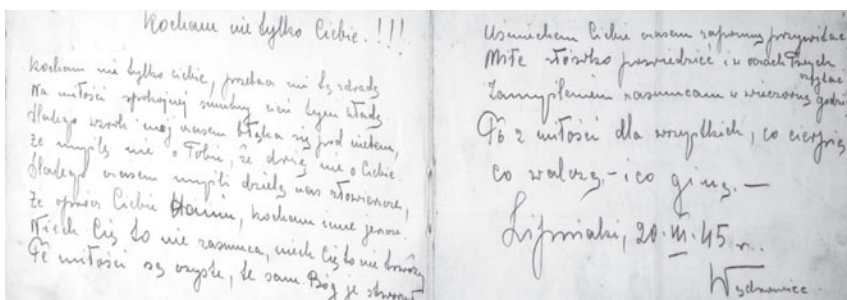 Kocham nie tylko Ciebie.!!!
Kocham nie tylko ciebie, przebacz mi tę zdradę
Na miłości spokojnej smutny cień tym kładę
Dlatego wzrok mój czasem błąka się pod niebem,
Że myślę nie o Tobie, że drżę nie o Ciebie.
Dlatego czasem myśli dzielą nas
Że oprócz Ciebie kocham inne jeszcze.
Niech Cię to nie zasmuca, niech Cię to nie trwoży
Te miłości są czyste, te sam Bóg je stworzył
Uśmiechem Ciebie czasem zapomnę przywitać
Miłe słówko powiedzieć i w oczach Twych czytać
Zamyśleniem zasmucam w wieczorną godzinę
To z miłości dla wszystkich, co cierpią
co walczą,-i co giną.-
20.III.45 r.